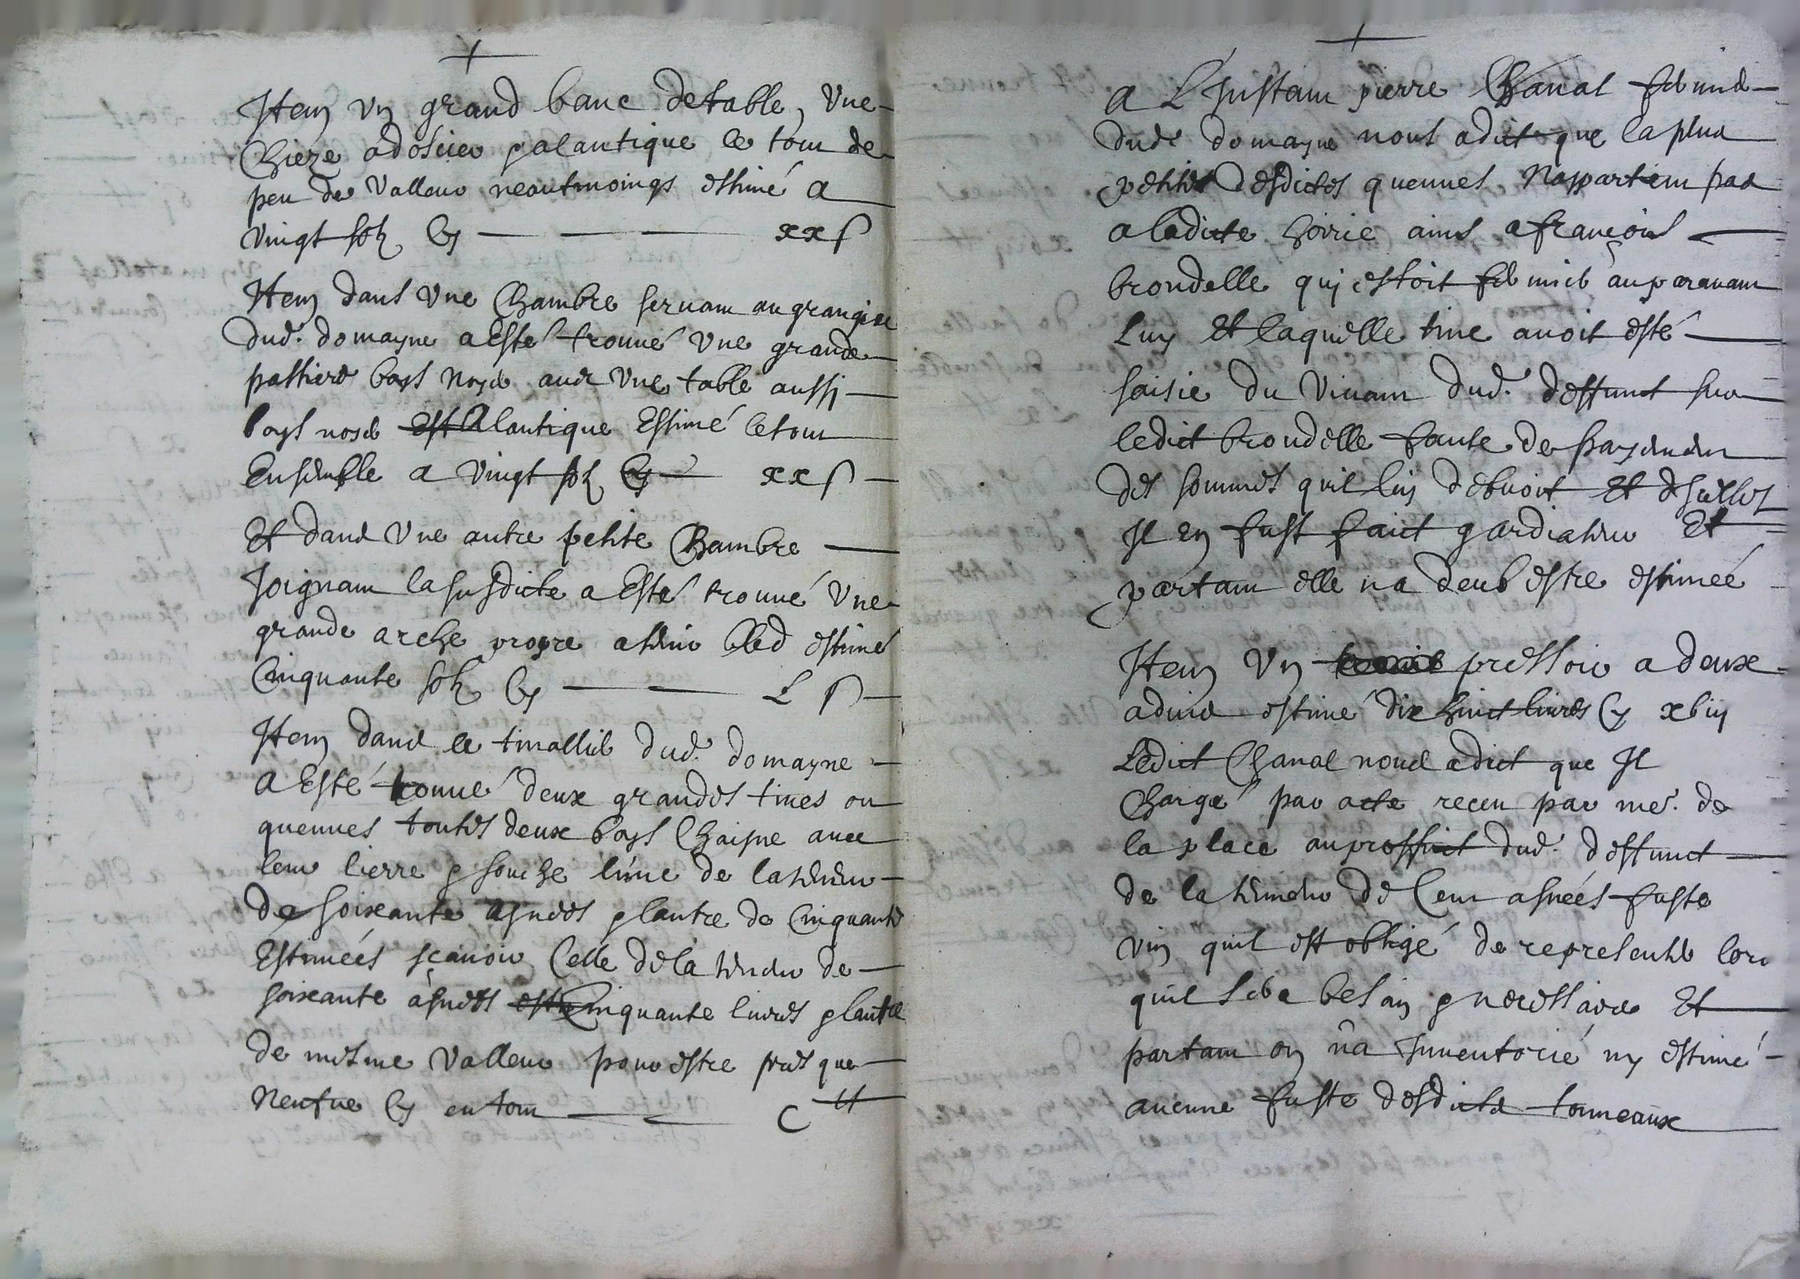 Item un grand banc de table, une
chieze a dossier a lantique le tout de
peu de valleur neantmoings estimé a
vingt solz cy xx s
Item dans une chambre servant au grangier
dud. domayne a esté trouvé une grande
pastiere boys noyer avec une table aussi
boys noyer a lantique estimé le tout
ensemble a vingt solz cy xx s
Et dans une autre petite chambre
joignant la susdicte a esté trouvé une
grande arche propre a tenir bled estimé
cinquante solz cy L s
Item dans le tinallier dud. domayne
a esté trouvé deux grandes tines ou
quennes toutes deux boys chaisne avec
leur lierre lune de la teneur
de soixante asnees et lautre de cinquante
estimées scavoir celle de la teneur de
soixante asnees cinquante livres et lautre
de mesme valleur pour estre presque
neufve cy en tout C ₶
a linstant pierre Chanal fermier
dud. domayne nous a dict que la plus
petite desdictes quennes nappartient pas
a ladicte hoirie ains a françois
brondelle qui estoit fermier auparavant
luy et laquelle tine avoit esté
saisie du vivant dud. deffunct sur
ledict brondelle faute de payement
des sommes quil luy debvoit et desquelles
il en fust faict gardiateur et
partant elle na deub estre estimée
Item un pressoir a deux
estimé dix huict livres cy xviij
Ledict Chanal nous a dict que il
chargé par acte receu par me. de
la place au proffict dud. deffunct
de la teneur de cent asnées fuste
vin quil est obligé de representer lors
quil sera besoin et necessaire et
partant on na inventorié ny estimé
aucune fuste desdicts tonneaux